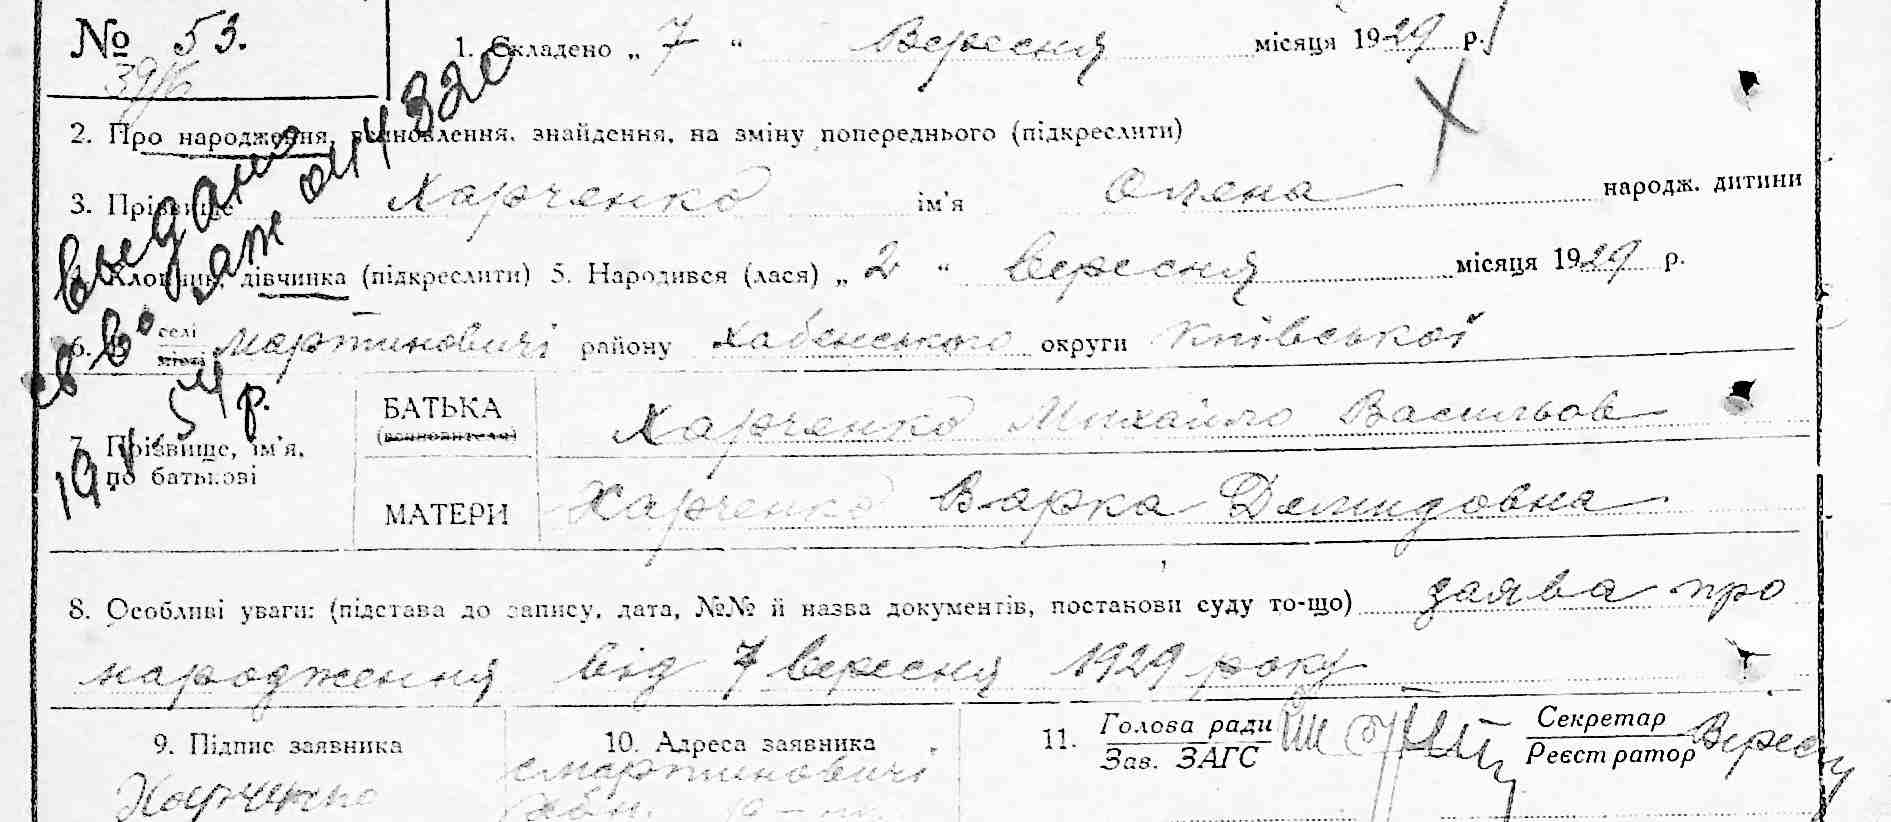 № 53.
1. Складено „ 7 “ Вересня місяця 1929 р.
39/6
2. Про народження, відновлення, знайдення, на зміну попереднього (підкреслити)
3. Прізвище Харченко ім'я Олена народж. дитини
4. Хлопчик, дівчинка (підкреслити) 5. Народився (лася) „ 2 “ вересня місяця 1929 р.
6. В селі місті Мартиновичі району Хабенського округи Київської
7. Прізвище, ім'я, по батькові
БАТЬКА (вчиновителя) Харченко Михайло Васильов
МАТЕРИ Харченко Варка Демидовна
8. Особливі уваги: (підстава до запису, дата, №№ й назва документів, постанови суду то-що) заява про
народження від 7 вересня 1929 року
9. Підпис заявника
Харченко
10. Адреса заявника
с мартиновичі
11. Голова ради
Зав. ЗАГС
Секретар
Реєстратор
выдано
св во
044320
19 54 р.